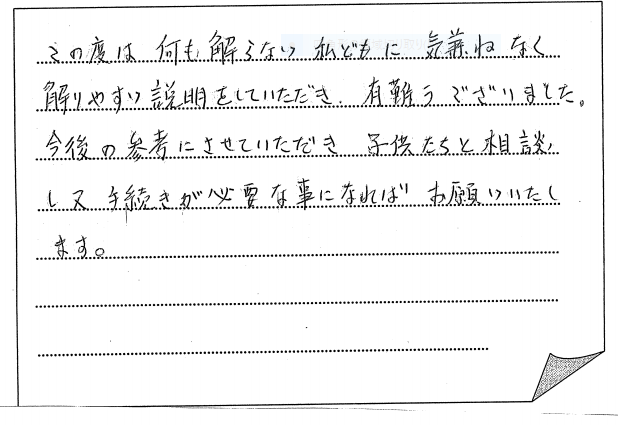 この度は 何も解らない 私どもに 気兼ねなく
解りやすい説明をしていただき、有難うございました。
今後の参考にさせていただき 子供たちと相談
し又 手続きが必要な事になれば お願いいたし
ます。